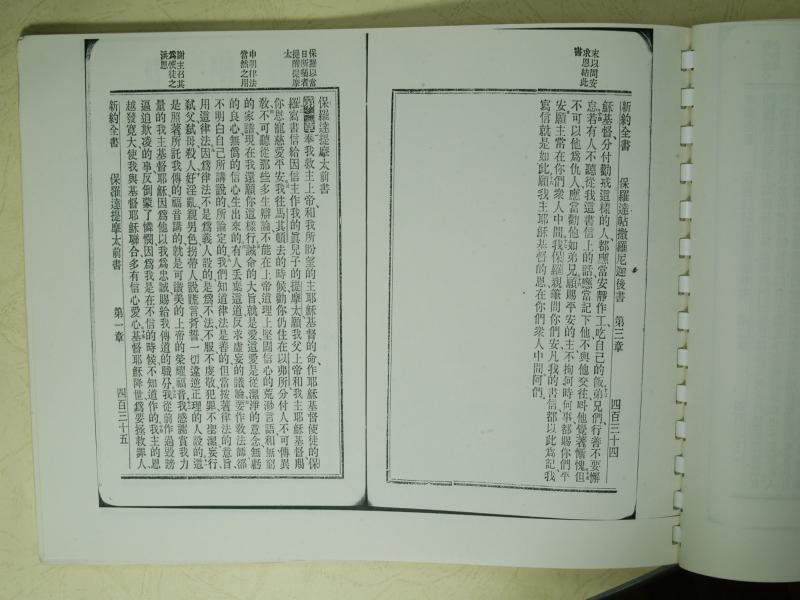 末以問安
求恩結此
書
新約全書 保羅達帖撒羅尼迦後書 第三章 四百三十四
穌基督分付勸戒這樣的人都應當安靜作工吃自己的飯弟兄們行善不要懈
怠若有人不聽從我這書信上的話應當記下他不與他交往叫他覺著慚愧但
不可以他為仇人應當勸他如弟兄願賜平安的主不拘何時何事都賜你們平
安願主常在你們衆人中間我保羅親筆問你們安凡我的書信都以此為記我
寫信就是如此願我主耶穌基督的恩在你們衆人中間阿們
保羅以當
日所囑者
提醒提摩
太
申明律法
當然之用
謝主召其
爲使徒之
洪恩
保羅達提摩太前書
第一章奉我救主上帝和我所盼望的主耶穌基督的命作耶穌基督使徒的保
羅寫書信給因信主作我的真兒子的提摩太願我父上帝和我主耶穌基督賜
你恩寵慈愛平安我往馬其頓去的時候勸你仍住在以弗所分付人不可傳異
敎不可聽從那些多生辯論不能在上帝道理上堅固信心的荒渺言語和無窮
的家譜現在我還願你這樣行誡命的大旨就是愛這愛是從潔淨的意念無虧
的良心無僞的信心生出來的有人丟棄這道反求虛妄的議論要作敎法師卻
不明白自己所講說的所論定的我們知道律法是善的但當按著律法的意旨
用這律法因爲律法不是爲義人設的是爲不法不服不虔敬犯罪不聖潔妄行
弑父弑母殺人奸淫亂親男色拐帶人說謊言背誓一切違逆正理的人設的這
是照著所託我傳的福音講的就是可讚美的上帝的榮耀福音我感謝賞我力
量的我主基督耶穌因爲他以我爲忠誠賜給我傳道的職分我從前作過毀謗
逼迫欺凌的事反倒蒙了憐憫因爲我是在不信的時候不知道作的我主的恩
越發寬大使我與基督耶穌聯合多有信心愛心基督耶穌降世爲要拯救罪人
新約全書 保羅達提摩太前書 第一章 四百三十五